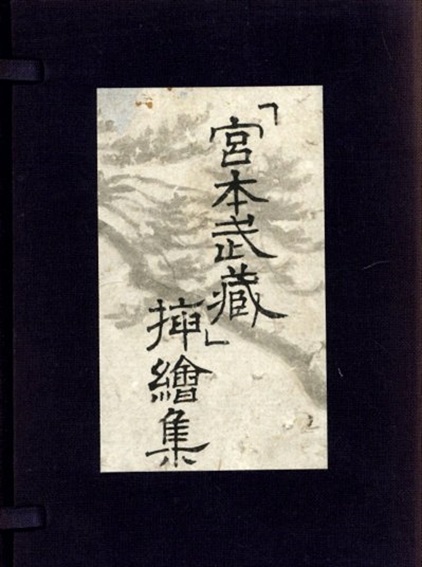 「宮本武藏」
挿繪集